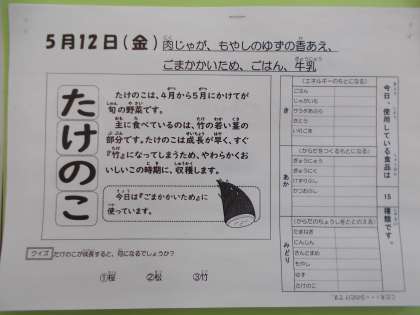 5月12日(金)
肉じゃが、もやしのゆずの香あえ、
ごまかかいため、ごはん、牛乳
たけのこ
たけのこは、4月から5月にかけてが
旬の野菜です。
主に食べているのは、竹の若い茎の
部分です。たけのこは成長が早く、すぐ
『竹』になってしまうため、やわらかくお
いしいこの時期に、収穫します。
今日は『ごまかかいため』に
使っています。
クイズ
たけのこが成長すると、何になるでしょうか?
①桜 ②松 ③竹
今日、使用している食品は 15 種類です。
き
(エネルギーのもとになる)
ごはん
じゃがいも
サラダあぶら
さとう
いりごま
あか
(からだをつくるもとになる)
ぎゅうにゅう
ぎゅうにく
けずりぶし
かつおぶし
みどり
(からだのちょうしをととのえる)
たまねぎ
にんじん
さんどまめ
もやし
ゆず
たけのこ